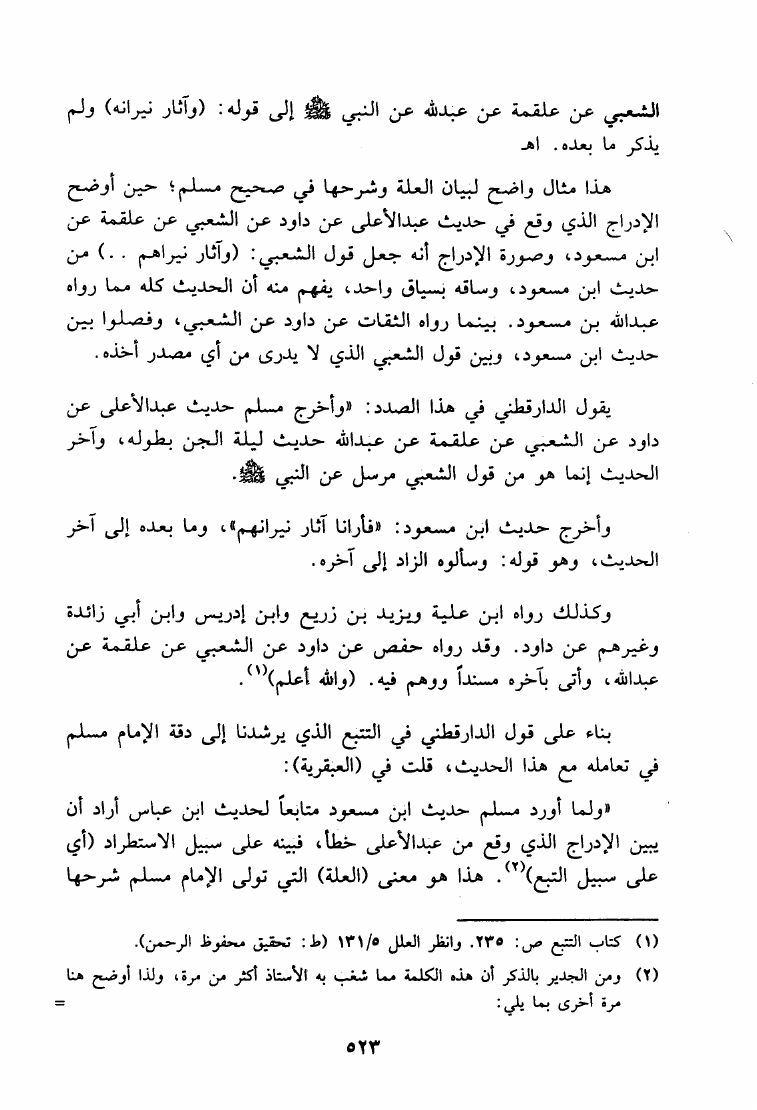 الشعبي عن علقمة عن عبدالله عن النبي ﷺ إلى قوله: (وآثار نيرانه) ولم
يذكر ما بعده. اهـ
هذا مثال واضح لبيان العلة وشرحها في صحيح مسلم؛ حين أوضح
الإدراج الذي وقع في حديث عبدالأعلى عن داود عن الشعبي عن علقمة عن
ابن مسعود، وصورة الإدراج أنه جعل قول الشعبي: (وآثار نيراهم ..) من
حديث ابن مسعود، وساقه بسياق واحد، يفهم منه أن الحديث كله مما رواه
عبدالله بن مسعود. بينما رواه الثقات عن داود عن الشعبي، وفصلوا بين
حديث ابن مسعود، وبين قول الشعبي الذي لا يدرى من أي مصدر أخذه.
يقول الدارقطني في هذا الصدد: «وأخرج مسلم حديث عبدالأعلى عن
داود عن الشعبي عن علقمة عن عبدالله حديث ليلة الجن بطوله، وآخر
الحديث إنما هو من قول الشعبي مرسل عن النبي ﷺ.
وأخرج حديث ابن مسعود: «فأرانا آثار نيرانهم»، وما بعده إلى آخر
الحديث، وهو قوله: وسألوه الزاد إلى آخره.
وكذلك رواه ابن علية ويزيد بن زريع وابن إدريس وابن أبي زائدة
وغيرهم عن داود. وقد رواه حفص عن داود عن الشعبي عن علقمة عن
عبدالله، وأتى بآخره مسنداً ووهم فيه. (والله أعلم)(١).
بناء على قول الدارقطني في التتبع الذي يرشدنا إلى دقة الإمام مسلم
في تعامله مع هذا الحديث، قلت في (العبقرية):
«ولما أورد مسلم حديث ابن مسعود متابعاً لحديث ابن عباس أراد أن
يبين الإدراج الذي وقع من عبدالأعلى خطأ، فبينه على سبيل الاستطراد (أي
على سبيل التبع)(٢). هذا هو معنى (العلة) التي تولى الإمام مسلم شرحها
(١) كتاب التتبع ص: ٢٣٥. وانظر العلل ١٣١/٥ (ط: تحقيق محفوظ الرحمن).
(٢) ومن الجدير بالذكر أن هذه الكلمة مما شغب به الأستاذ أكثر من مرة، ولذا أوضح هنا
مرة أخرى بما يلي: =
٥٢٣